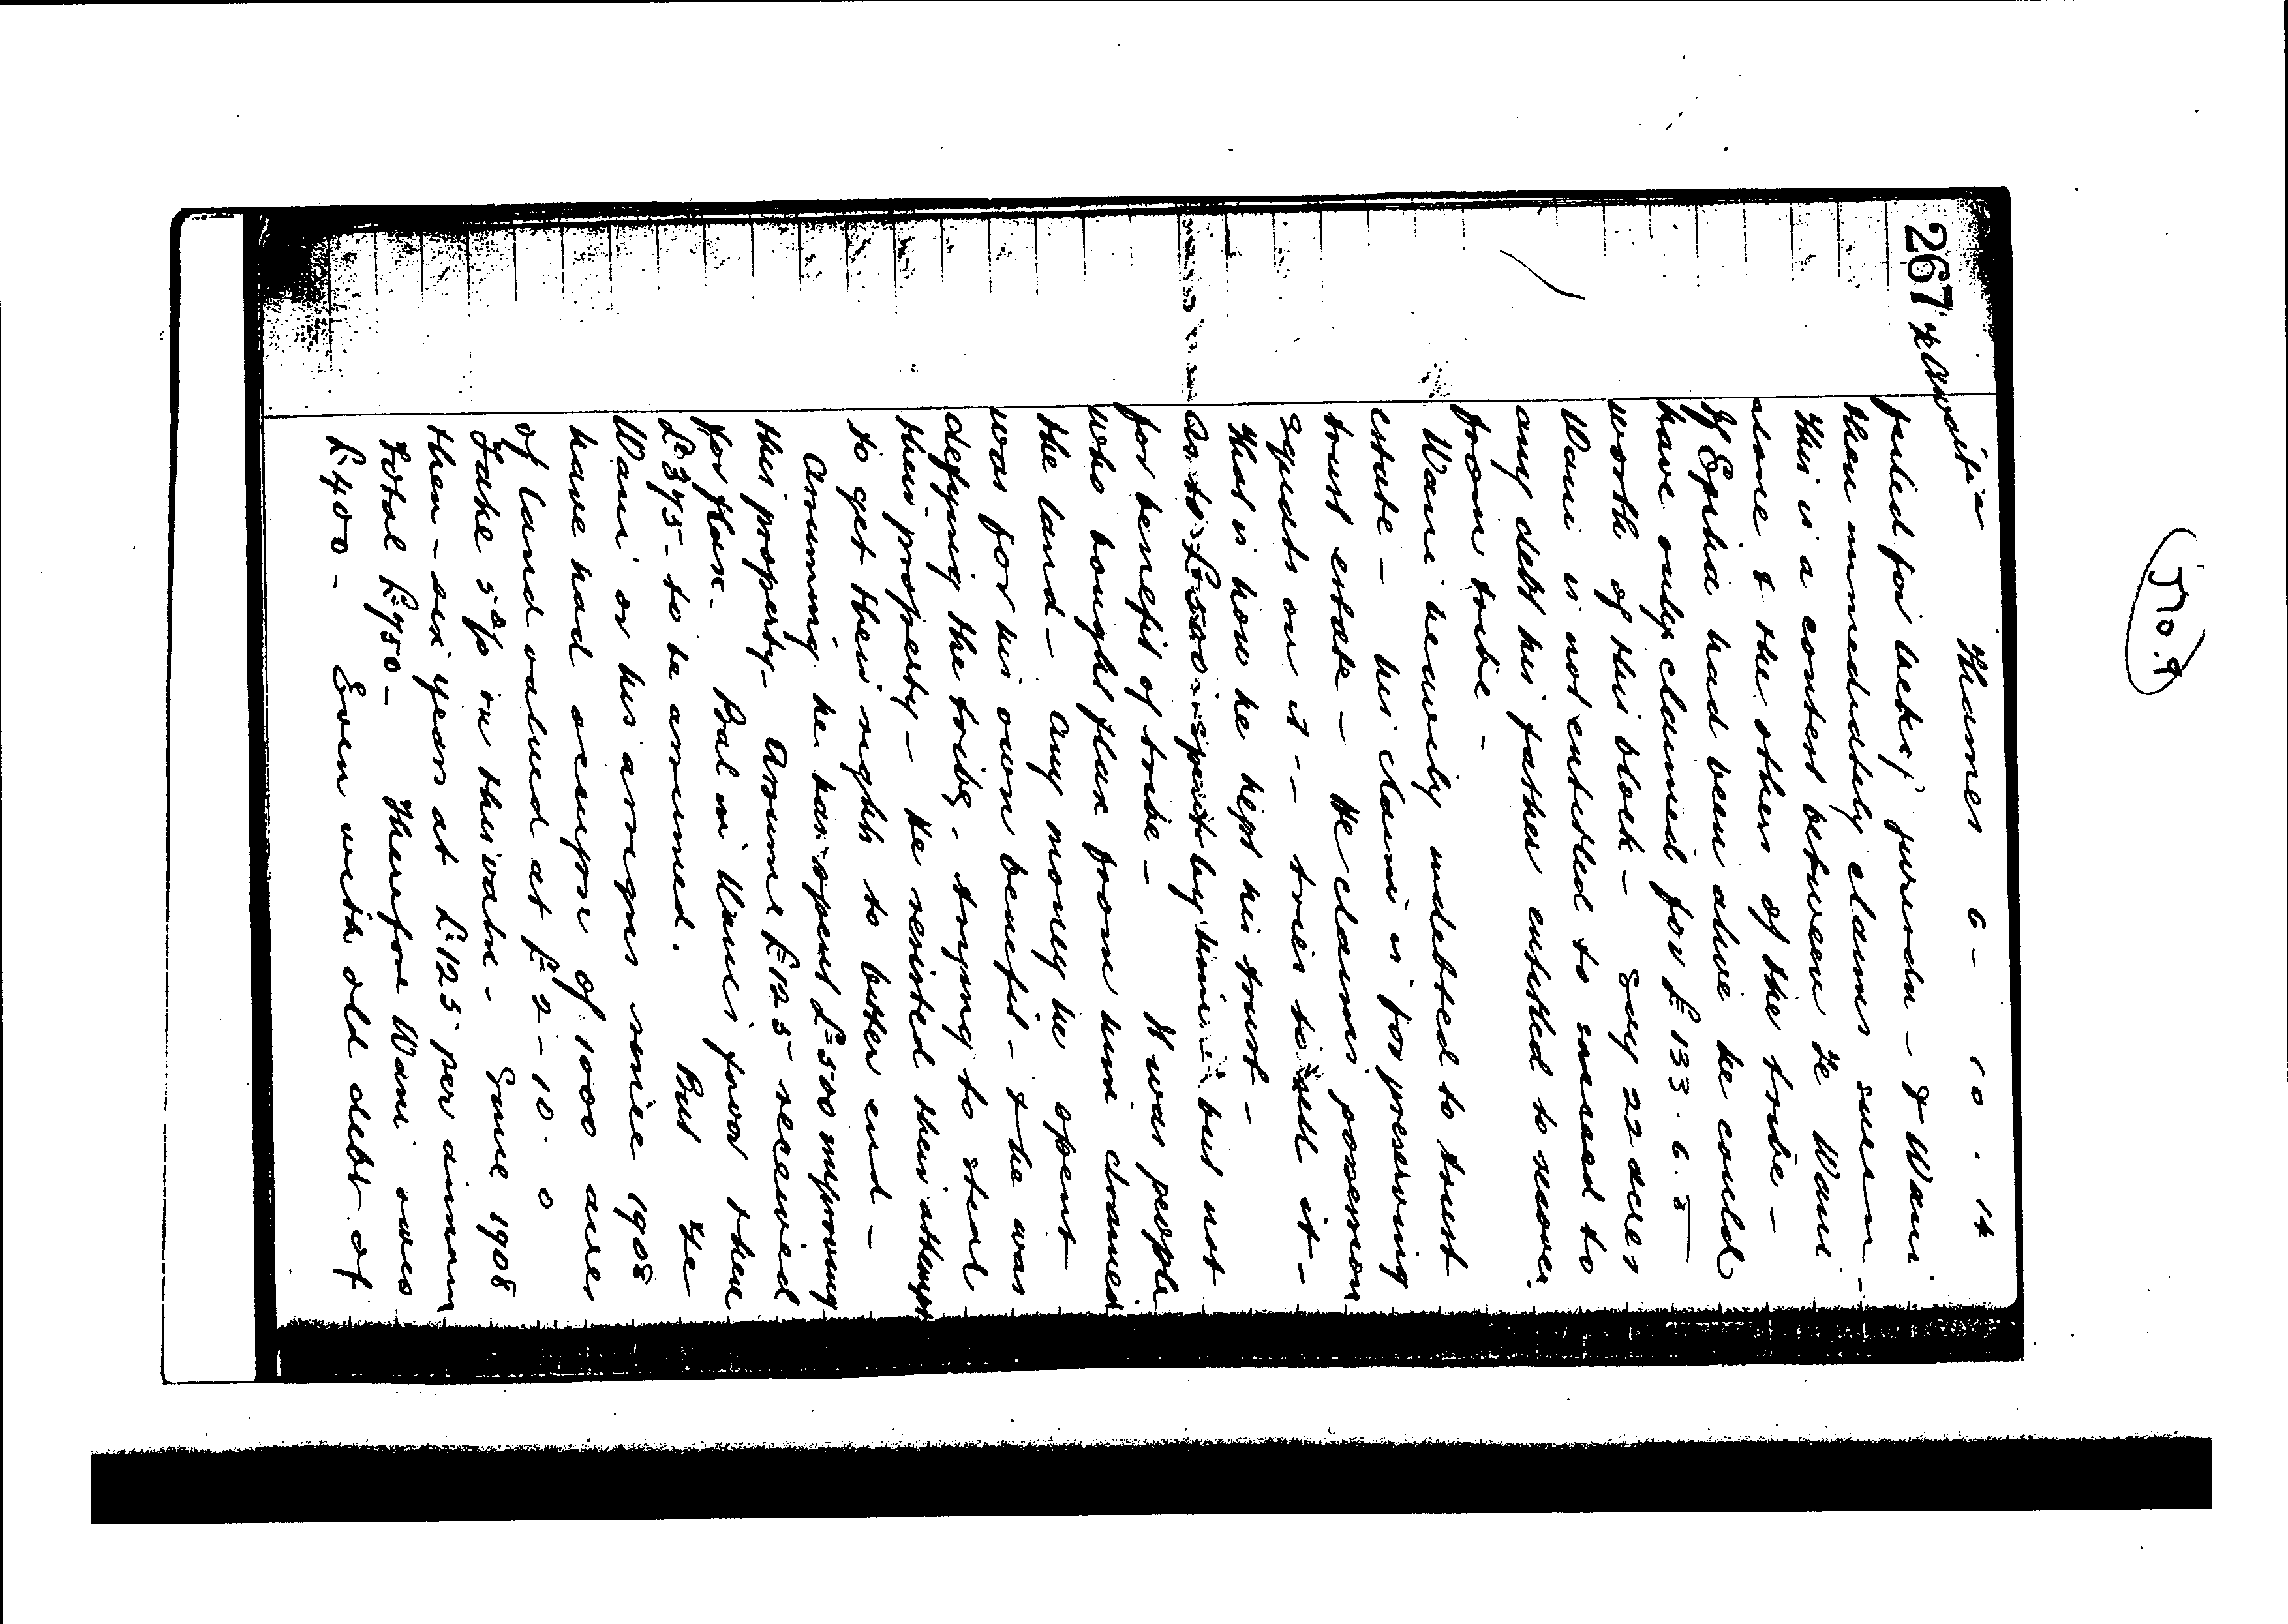 (170.9)
267
Thames 6 - 10 . 14
failed for lack of jurisdn - & Wani
then immediately claims sum -
This is a contest between Te Wani
alone & the others of the tribe -
If Epiha had been alive he could
have only claimed for £133.6.8
worth of this block - say 22 acres
Wani is not entitled to succeed to
any debt his father entitled to recover
from tribe -
Wani heavily indebted to trust
estate - his claim is for preserving
trust estate - He claims possession
squats on it - tries to sell it -
that is how he kept his trust -
As to £500 spent by him - but not
for benefit of tribe - It was people
who bought flax from him drained
the land - Any money he spent
was for his own benefit - & he was
defying the tribe - trying to steal
their property - He resisted their attempt
to get their rights to bitter end -
Assuming he has spent £500 improving
this property - Assume £125 received
for flax - Bal in Wanis favor then
£375 - to be assumed. But Te
Wani or his assigns since 1908
have had occupn of 1000 acres
of land valued at £2-10.0
Take 5% on this valn - Since 1908
then - six years at £125 per annum
Total £750 - Therefore Wani owes
£400 - Even with old debt of